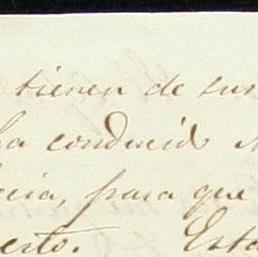 tienen de sus
ha conducido
cia, para que
erto. Esta